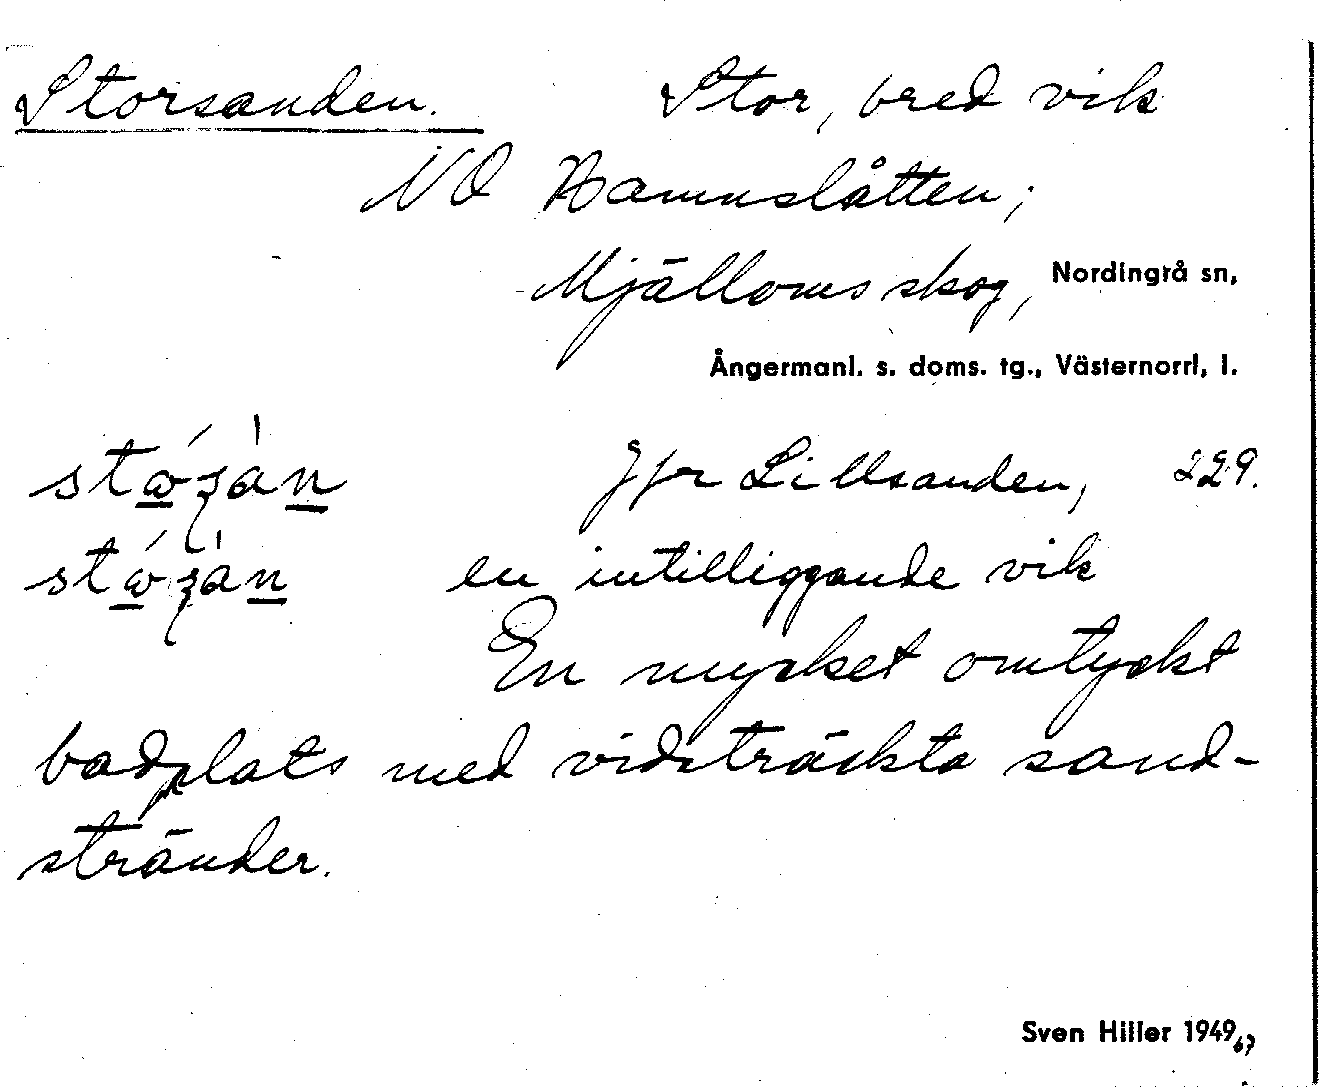 Storsanden. Stor, bred vik
NO Hamnslåtten;
Mjälloms skog, Nordingrå sn,
Ångermanl. s. doms. tg., Västernorrl, l.
Jfr Lillsanden, 229.
en intilliggande vik
En mycket omtyckt
badplats med vidsträckta sand-
stränder.
Sven Hiller 1949,67